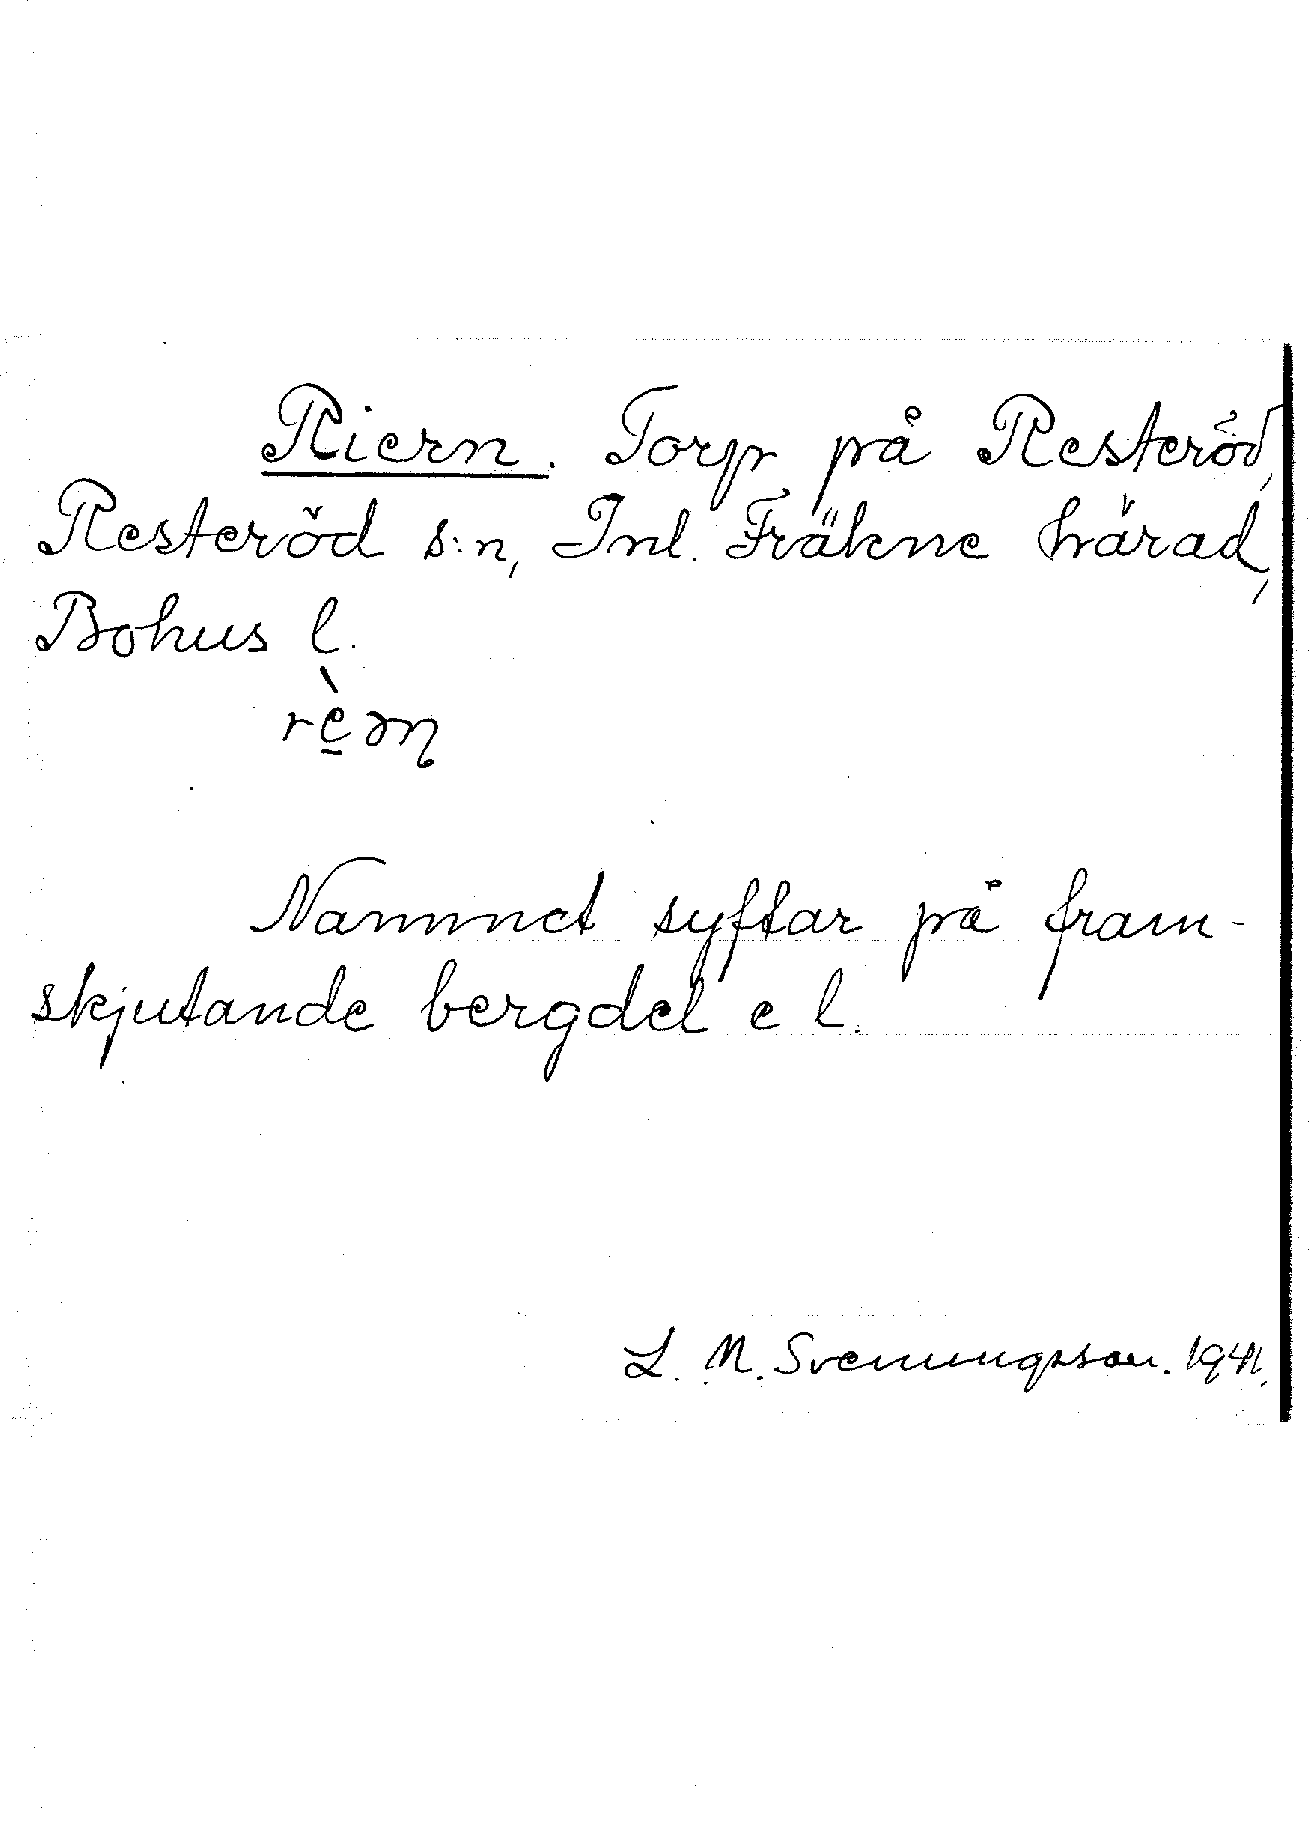 Riern. Torp på Resteröd,
Resteröd s:n, Inl. Fräkne härad,
Bohus l.
rè̱əɳ
Namnet syftar på fram-
skjutande bergdel e l.
L. M. Svenungsson. 1941.